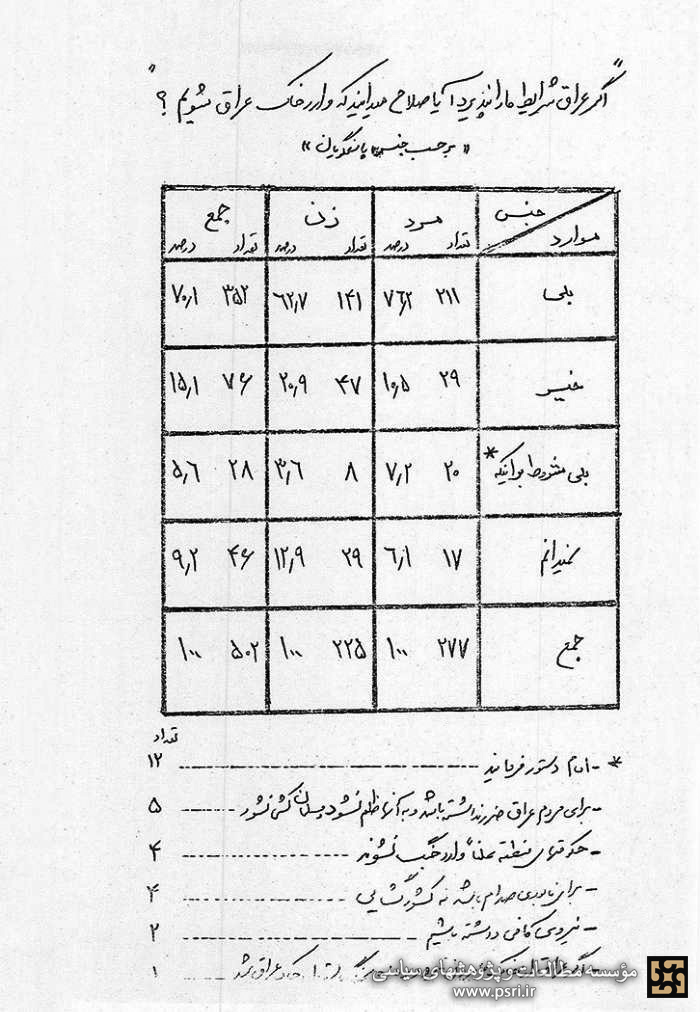 "اگر عراق شرایط ما را نپذیرد، آیا صلاح میدانید که وارد خاک عراق شویم ؟"
«بر حسب جنس پاسخگویان»
جنس مرد زن جمع
موارد تعداد درصد تعداد درصد تعداد درصد
بلی ۲۱۱ ۷۶٫۲ ۱۴۱ ۶۲٫۷ ۳۵۲ ۷۰٫۱
خیر ۲۹ ۱۰٫۵ ۴۷ ۲۰٫۹ ۷۶ ۱۵٫۱
بلی مشروط بر اینکه* ۲۰ ۷٫۲ ۸ ۳٫۶ ۲۸ ۵٫۶
نمیدانم ۱۷ ۶٫۱ ۲۹ ۱۲٫۹ ۴۶ ۹٫۲
جمع ۲۷۷ ۱۰۰ ۲۲۵ ۱۰۰ ۵۰۲ ۱۰۰
تعداد
* - امام دستور فرمایند ۱۲
- برای مردم عراق ضرر نداشته باشد و به آنها ظلم نشود و مسلمان کشی نشود ۵
- حکومتهای منطقه علناً وارد جنگ نشوند ۴
- برای نابودی صدام باشد نه کشورگشایی ۴
- نیروی کافی داشته باشیم ۲
عراق شد ۱
مؤسسه مطالعات و پژوهشهای سیاسی
www.psri.ir